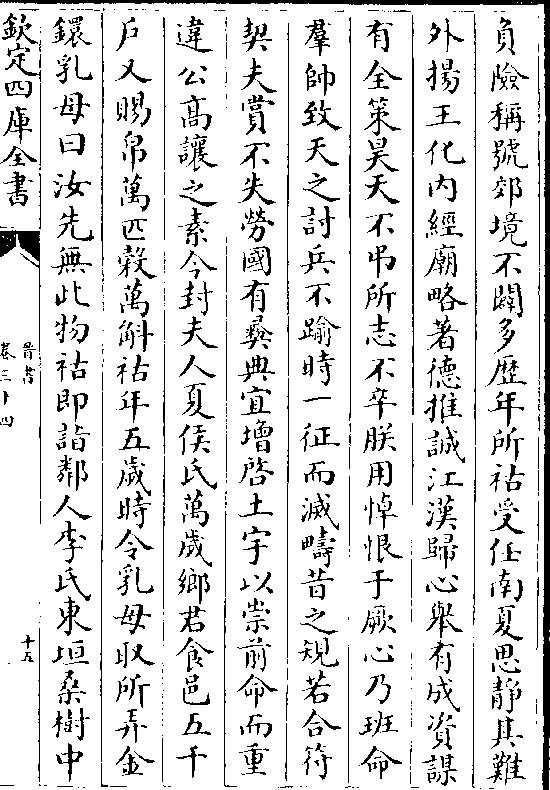 負險稱號郊境不闢多歴年所祜受任南夏思靜其難
外揚王化内經廟略著德推誠江漢歸心舉有成資謀
有全策昊天不弔所志不卒朕用悼恨于厥心乃班命
羣帥致天之討兵不踰時一征而滅疇昔之規若合符
契夫賞不失勞國有彞典宜增啓土宇以崇前命而重
違公髙讓之素今封夫人夏侯氏萬歳鄉君食邑五千
戶又賜帛萬匹榖萬斛祜年五歳時令乳母取所弄金
鐶乳母曰汝先無此物祜即詣鄰人李氏東垣桑樹中
欽定四庫全書
晉書
卷三十四
十五